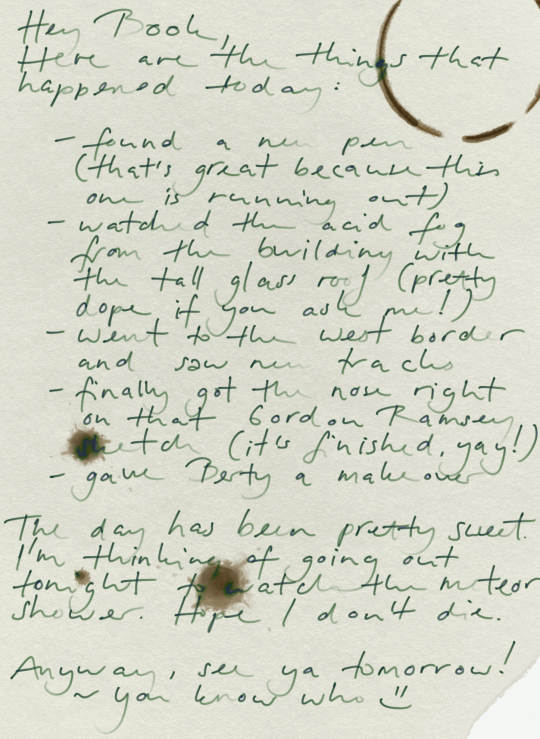 Hey Book,
Here are the things that
happened today:
- found a new pen
(that's great because this
one is running out)
- watched the acid fog
from the building with
the tall glass roof (pretty
dope if you ask me!)
- went to the west border
and saw new tracks
- finally got the nose right
on that Gordon Ramsey
sketch (it's finished, yay!)
- gave Berty a makeover
The day has been pretty sweet.
I'm thinking of going out
tonight to watch the meteor
shower. Hope I don't die.
Anyway, see ya tomorrow!
~ you know who :)